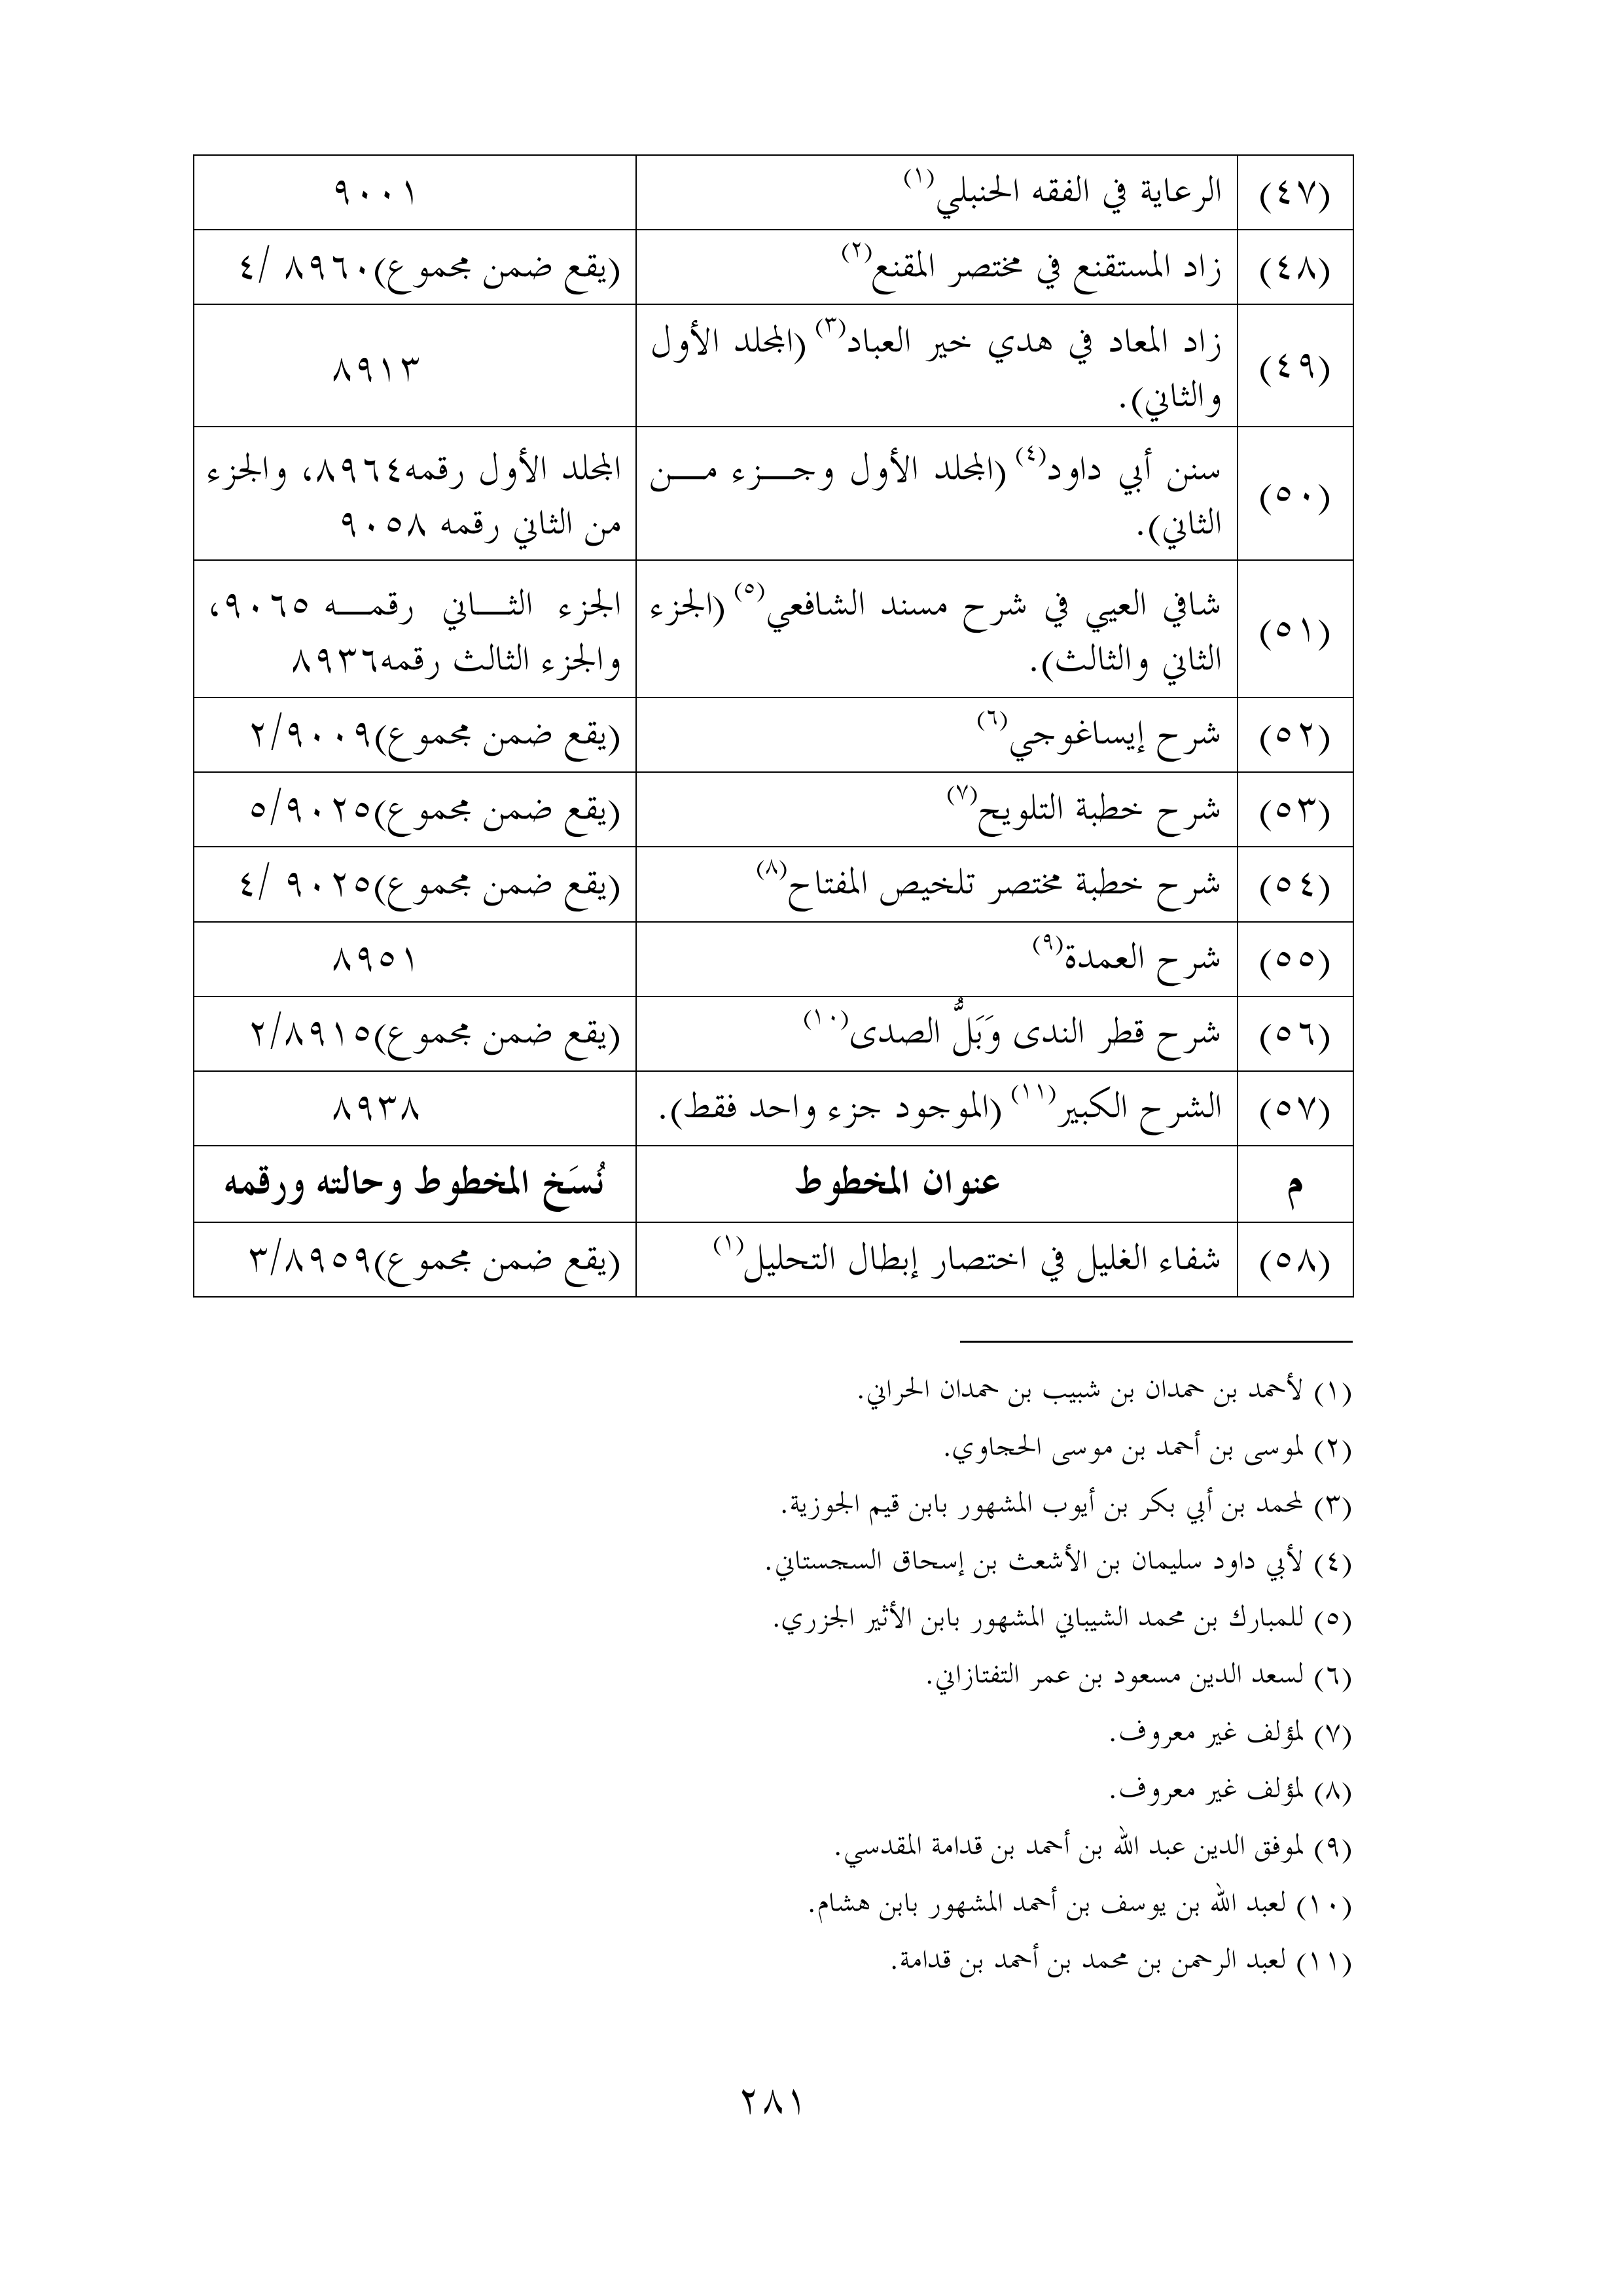 (٤٧) الرعاية في الفقه الحنبلي(١) ٩٠٠١
(٤٨) زاد المستقنع في مختصر المقنع(٢) (يقع ضمن مجموع)٨٩٦٠ /٤
(٤٩) زاد المعاد في هدي خير العباد(٣) (المجلد الأول
والثاني). ٨٩١٣
(٥٠) سنن أبي داود(٤) (المجلد الأول وجـــزء مـــن
الثاني). المجلد الأول رقمه٨٩٦٤، والجزء
من الثاني رقمه ٩٠٥٨
(٥١) شافي العيي في شرح مسند الشافعي(٥) (الجزء
الثاني والثالث). الجزء الثـــاني رقمـــه ٩٠٦٥،
والجزء الثالث رقمه٨٩٣٦
(٥٢) شرح إيساغوجي(٦) (يقع ضمن مجموع)٢/٩٠٠٩
(٥٣) شرح خطبة التلويح(٧) (يقع ضمن مجموع)٥/٩٠٢٥
(٥٤) شرح خطبة مختصر تلخيص المفتاح(٨) (يقع ضمن مجموع)٩٠٢٥ /٤
(٥٥) شرح العمدة(٩) ٨٩٥١
(٥٦) شرح قطر الندى وَبَلُّ الصدى(١٠) (يقع ضمن مجموع)٢/٨٩١٥
(٥٧) الشرح الكبير(١١) (الموجود جزء واحد فقط). ٨٩٣٨
م عنوان المخطوط نُسَخ المخطوط وحالته ورقمه
(٥٨) شفاء الغليل في اختصار إبطال التحليل(١) (يقع ضمن مجموع)٣/٨٩٥٩
(١) لأحمد بن حمدان بن شبيب بن حمدان الحراني.
(٢) لموسى بن أحمد بن موسى الحجاوي.
(٣) لمحمد بن أبي بكر بن أيوب المشهور بابن قيم الجوزية.
(٤) لأبي داود سليمان بن الأشعث بن إسحاق السجستاني.
(٥) للمبارك بن محمد الشيباني المشهور بابن الأثير الجزري.
(٦) لسعد الدين مسعود بن عمر التفتازاني.
(٧) لمؤلف غير معروف.
(٨) لمؤلف غير معروف.
(٩) لموفق الدين عبد الله بن أحمد بن قدامة المقدسي.
(١٠) لعبد الله بن يوسف بن أحمد المشهور بابن هشام.
(١١) لعبد الرحمن بن محمد بن أحمد بن قدامة.
٢٨١